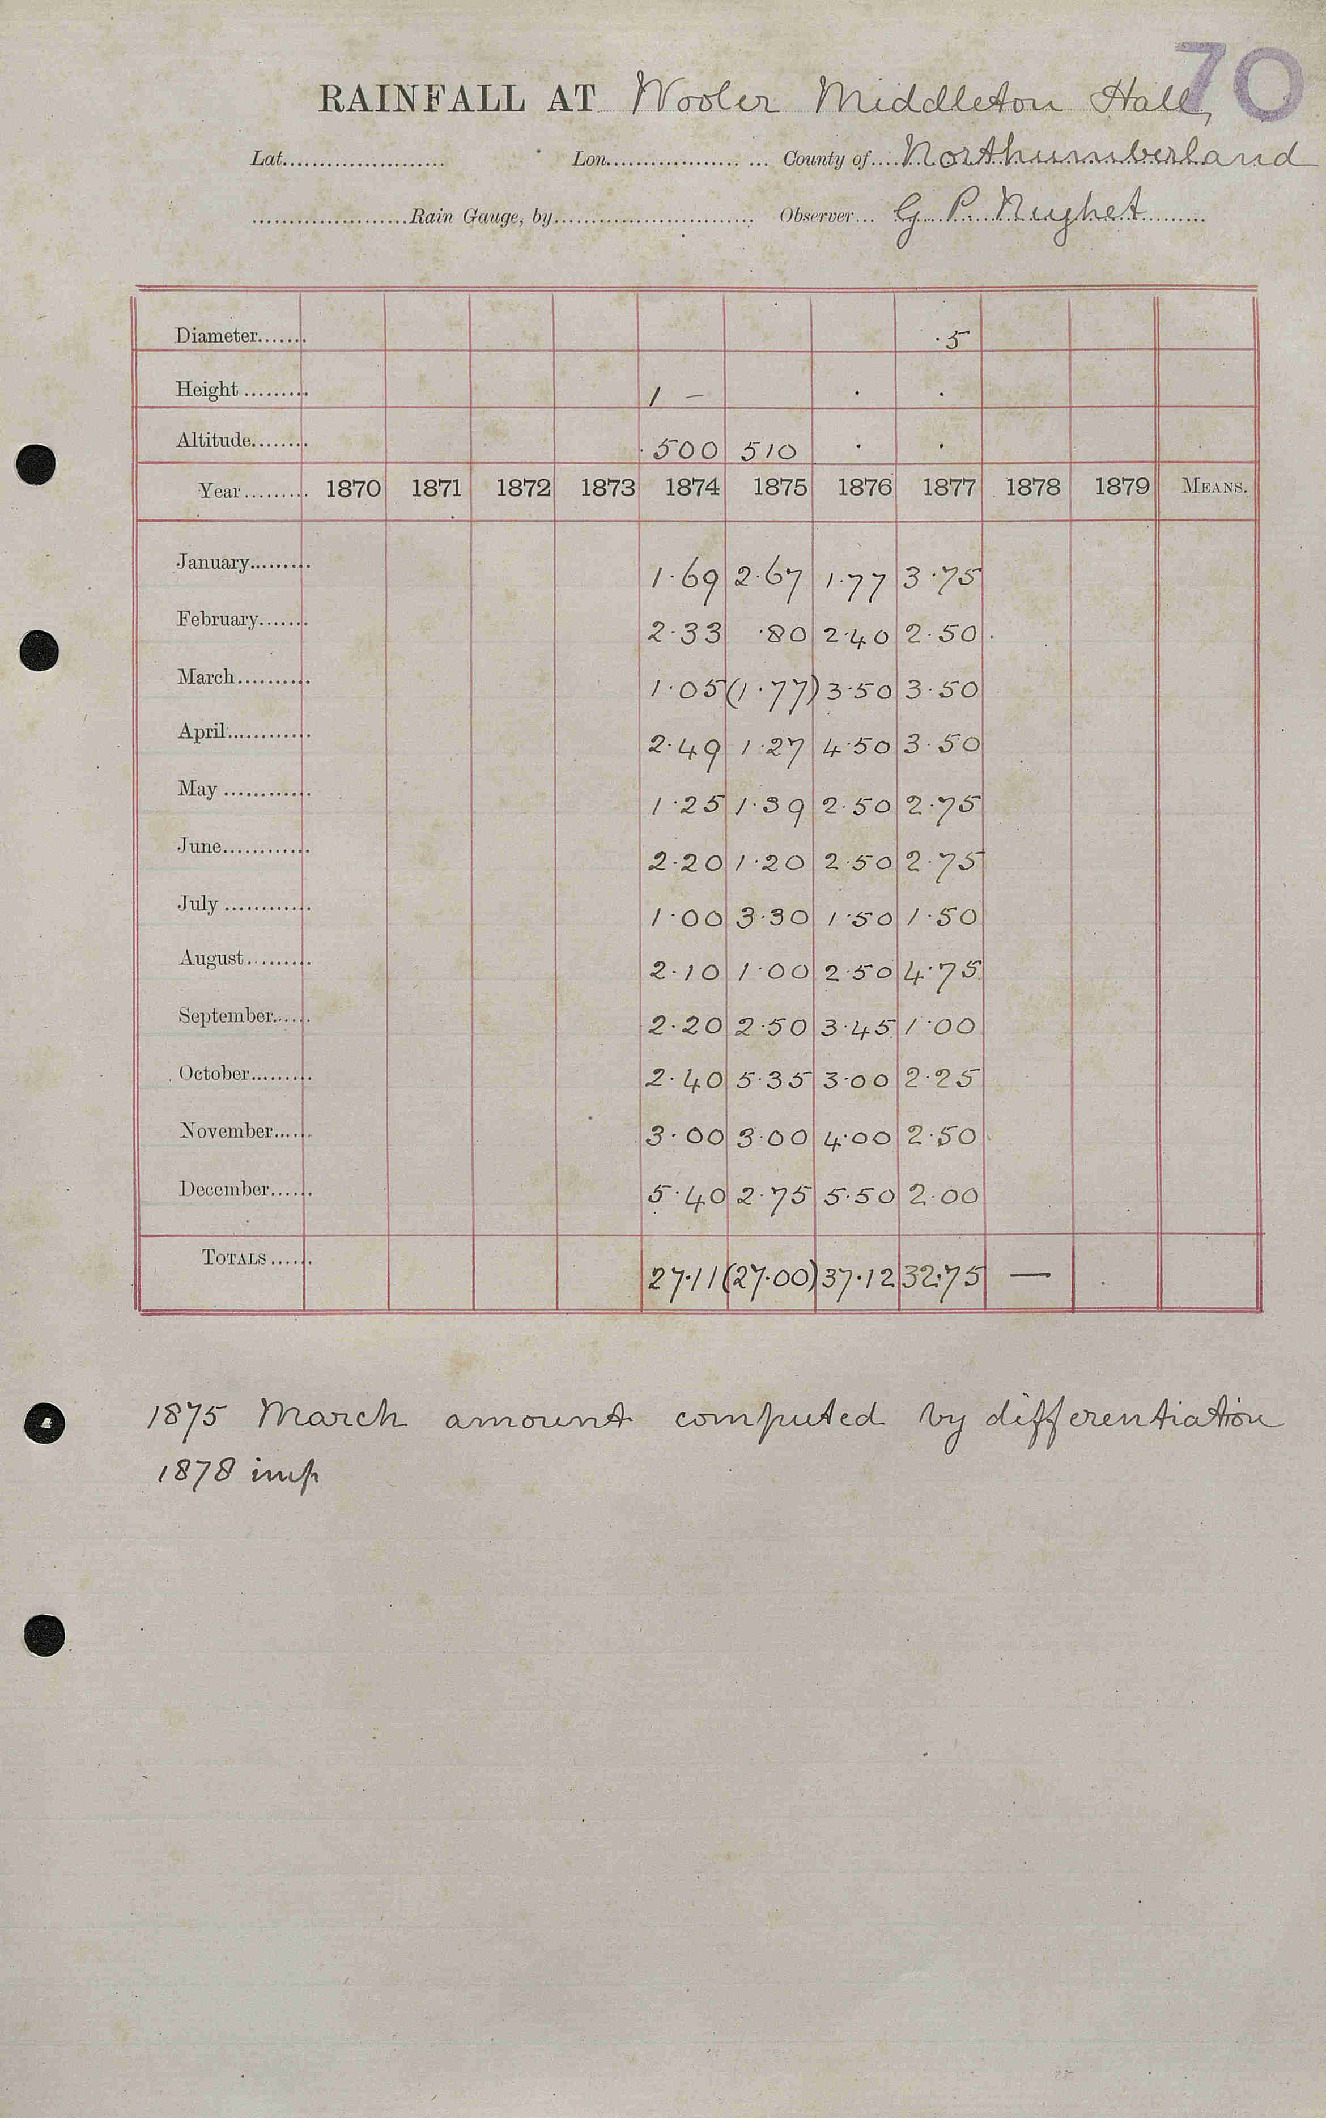 70
RAINFALL AT Wooler Middleton Hall,
Lat. Lon. County of Northumberland
Rain Gauge, by Observer G P. Nughet
Diameter ·5
Height 1 –
Altitude 500 510
Year 1870 1871 1872 1873 1874 1875 1876 1877 1878 1879 MEANS.
January 1·69 2·67 1·77 3·75
February 2·33 ·80 2·40 2·50
March 1·05 (1·77) 3·50 3·50
April 2·49 1·27 4·50 3·50
May 1·25 1·39 2·50 2·75
June 2·20 1·20 2·50 2·75
July 1·00 3·30 1·50 1·50
August 2·10 1·00 2·50 4·75
September 2·20 2·50 3·45 1·00
October 2·40 5·35 3·00 2·25
November 3·00 3·00 4·00 2·50
December 5·40 2·75 5·50 2·00
TOTALS 27·11 (27·00) 37·12 32·75 —
1875 March amount computed by differentiation
1878 imp